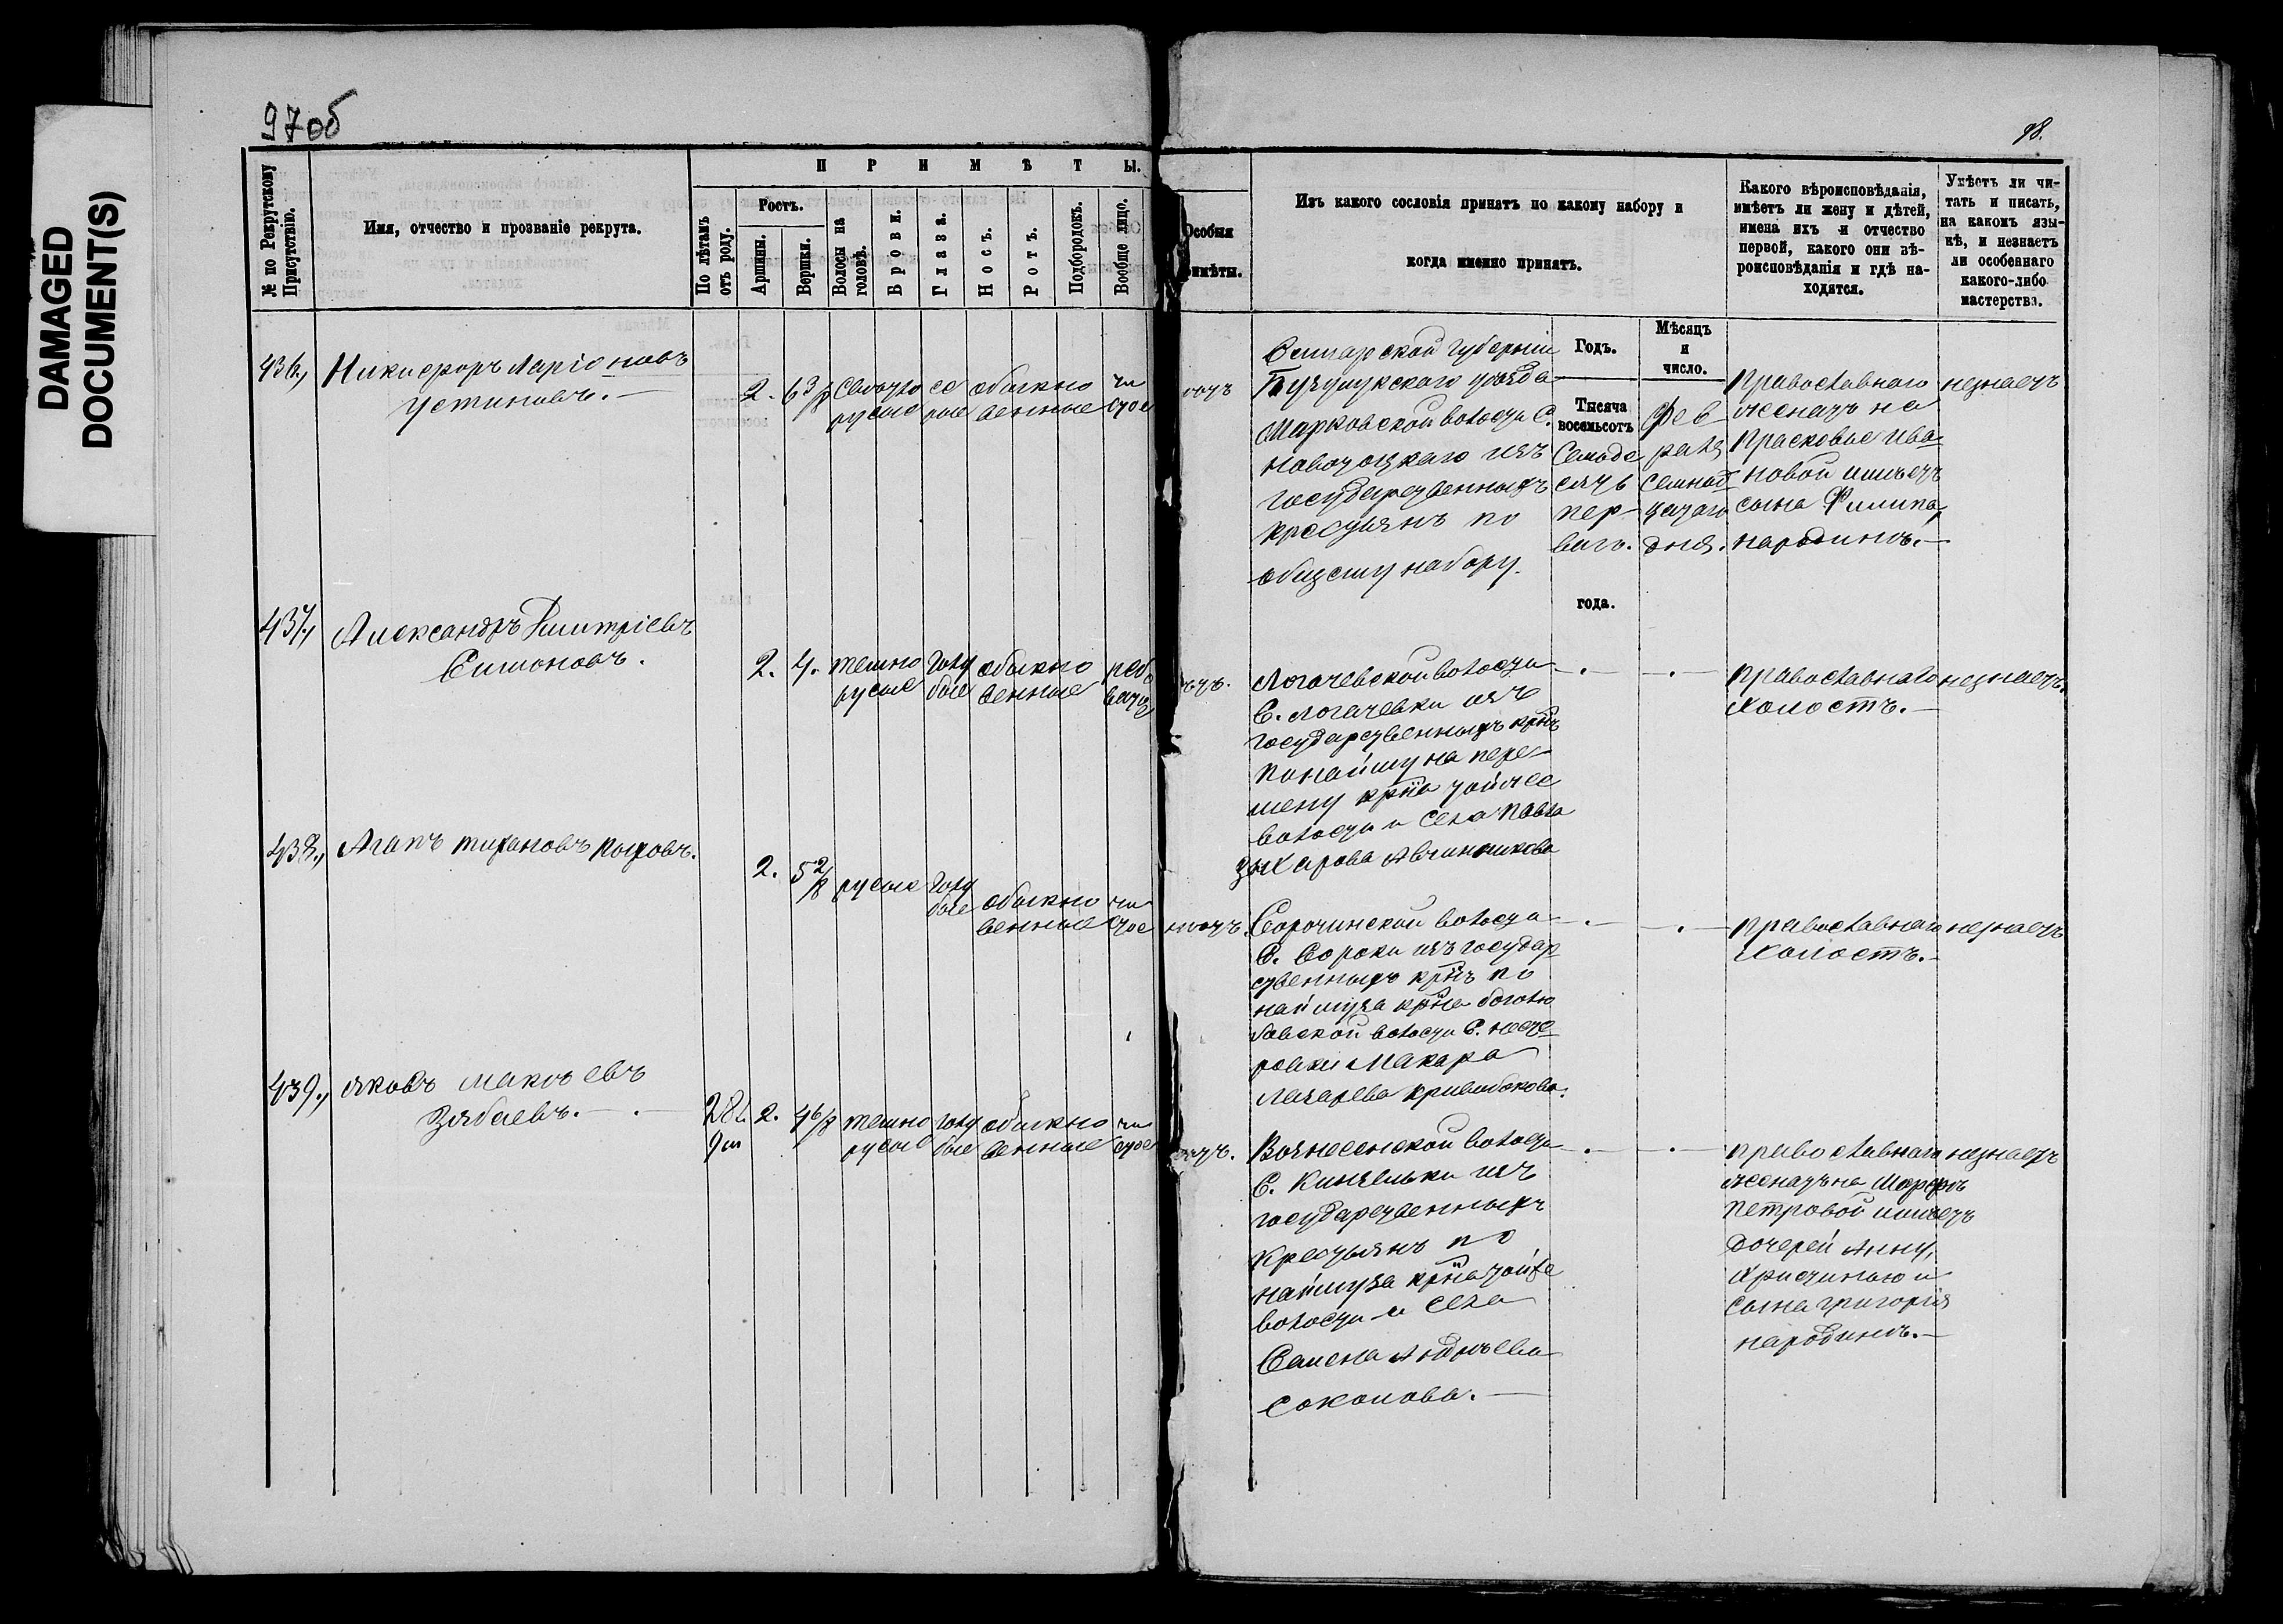 DAMAGED
DOCUMENT(S)
97 об
98.
№ по Рекрутскому Присутствію.
Имя, отчество и прозваніе рекрута.
ПРИМѢТЫ.
По лѣтамъ отъ роду.
Ростъ.
Аршины.
Вершки.
Волосы на головѣ.
Брови.
Глаза.
Носъ.
Ротъ.
Подбородокъ.
Вообще лицо.
Особыя
имѣты.
Изъ какого сословія принятъ по какому набору и
когда именно принятъ.
Какого вѣроисповѣданія,
имѣетъ ли жену и дѣтей,
имена ихъ и отчество
первой, какого они вѣ-
роисповѣданія и гдѣ на-
ходятся.
Умѣетъ ли чи-
тать и писать,
на какомъ язы-
кѣ, и незнаетъ
ли особеннаго
какого-либо
мастерства.
Годъ.
Мѣсяцъ
и
число.
436.,
Никифоръ Ларіоновъ
Устиновъ.—
2.
6 3/8
Свѣтло
русые
се
рые
обыкно
венные
чи
стое
Самарской губерніи
Бузулукскаго уѣзда
Марковской волости С.
изъ
государственныхъ
крестьянъ по
общему набору.
Тысяча
восемьсотъ
Семьде
сятъ
пер-
ваго.
года.
Фев
раля
семнад
цатаго
дня.
Православнаго
женатъ на
Прасковье Ива
новой имѣетъ
сына Филипа,
народинѣ.—
незнаетъ
437.,
Александръ Дмитріевъ
Симоновъ.
2.
4.
темно
русые
голу
бые
обыкно
венные
рябо
ватое
Логачевской волости
С. Логачевки изъ
государственныхъ крнъ
по найму на пере-
мену крна той же
волости и села Павла
Захарова Авчинникова
Православнаго
Холостъ.—
незнаетъ.
438.,
Агапъ
2.
5 2/8
русые
голу
бые
обыкно
венные
чи
стое
Сорочинской волости
С. Сороки изъ государ
ственныхъ крнъ по
найму за крна Боголю
бовской волости С. Несте
ровки Макара
Лазарева Кривобокова.
Православнаго
Холостъ.—
незнаетъ
439.,
Яковъ
Зябаевъ.—.—
28 л.
9 м
2.
4 6/8
темно
русые
голу
бые
обыкно
венные
чи
стое
Вознесенской волости
С. Кинзельки изъ
государственныхъ
крестьянъ по
найму за крна той же
волости и села
Семена Андрѣева
Соколова.—
Православнаго
женатъ на Марфѣ
Петровой имѣетъ
дочерей Анну,
Христинью и
сына Григорія
народинѣ.—
незнаетъ